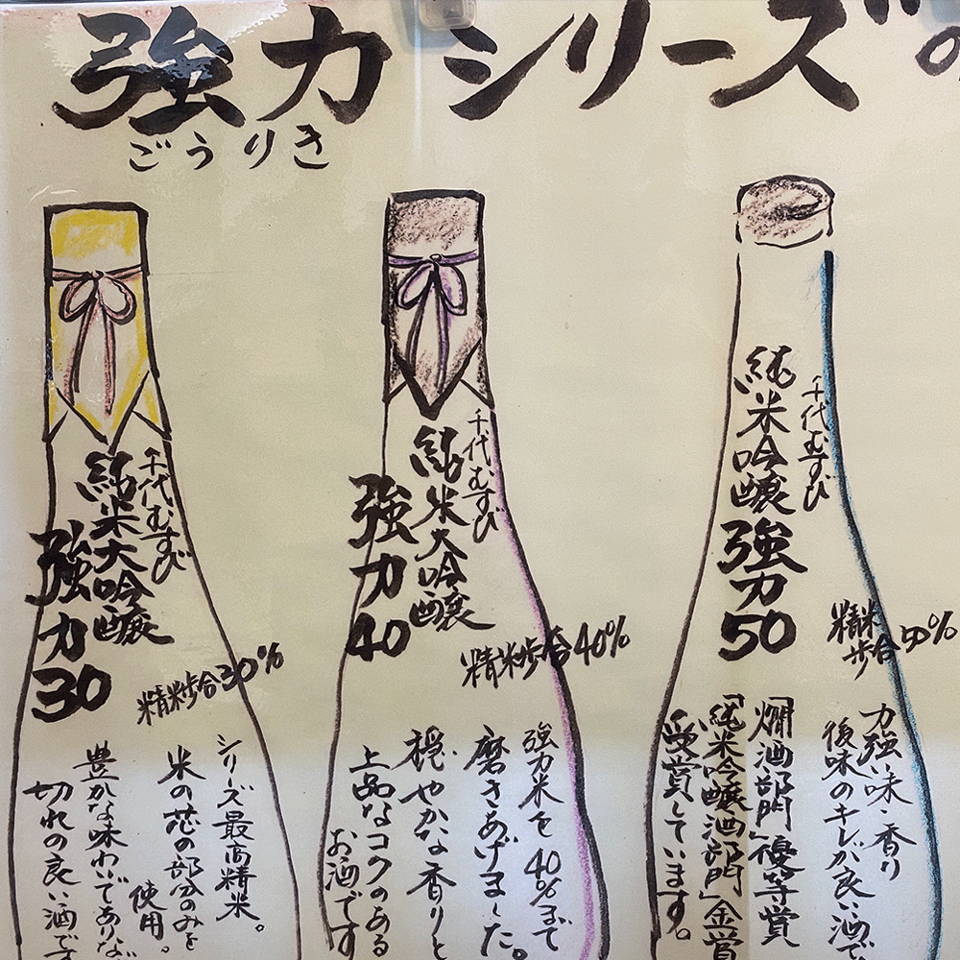 強力シリーズの
ごうりき
千代むすび
純米大吟醸
強力
30
精米歩合30%
シリーズ最高精米。
米の芯の部分のみを
使用。
豊かな味わいでありな
切れの良い酒です
千代むすび
純米大吟醸
強力
40
精米歩合40%
強力米を40%まで
磨きあげました。
穏やかな香りと
上品なコクのある
お酒です
千代むすび
純米吟醸強力
50
精米
歩合50%
力強い味・香り
後味のキレが良い酒で
「燗酒部門」優等賞
「純米吟醸酒部門」金賞
受賞しています。